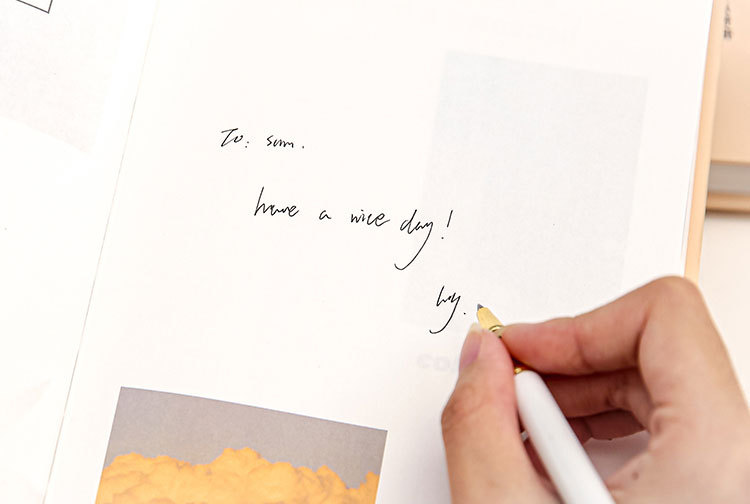 To: sum.
have a nice day!